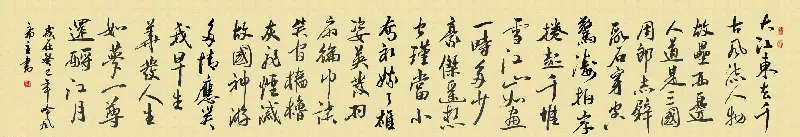 大江東去千
古風流人物
故壘西邊
人道是三國
周郎赤壁
亂石穿空
驚濤拍岸
捲起千堆
雪江山如畫
一時多少
豪傑遙想
公瑾當小
喬初嫁了雄
姿英發羽
扇綸巾談
笑間檣櫓
灰飛煙滅
故國神游
多情應笑
我早生
華髮人生
如夢一尊
還酹江月
歲在癸巳年
齋主書